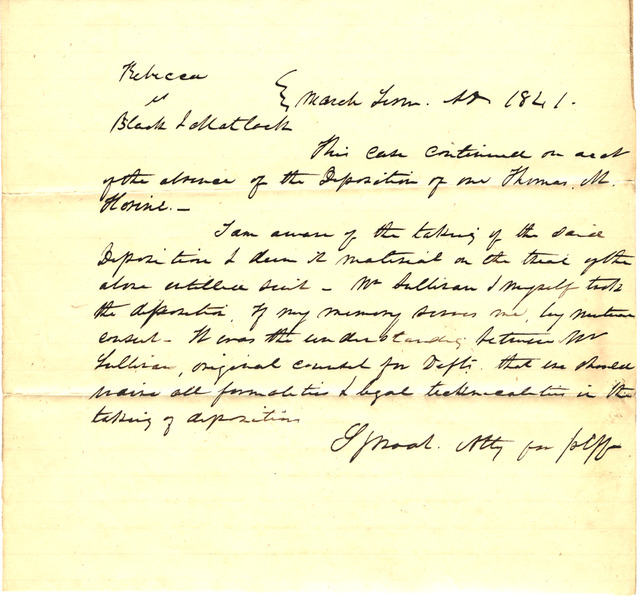 Rebecca
vs
Black & Matlock
March Term. AD 1841.
This case continued on acct
of the absence of the Deposition of one Thomas. M.
Horine. —
I am aware of the taking of the said
Deposition & deem it material on the trial of the
above entitled suit — Mr Sullivan & myself took
the deposition, If my memory serves me, by mutual
consent — It was the understanding between Mr
Sullivan, original counsel for Defts. that we should
waive all formalities & legal technicalities in the
taking of depositions
Atty for plff